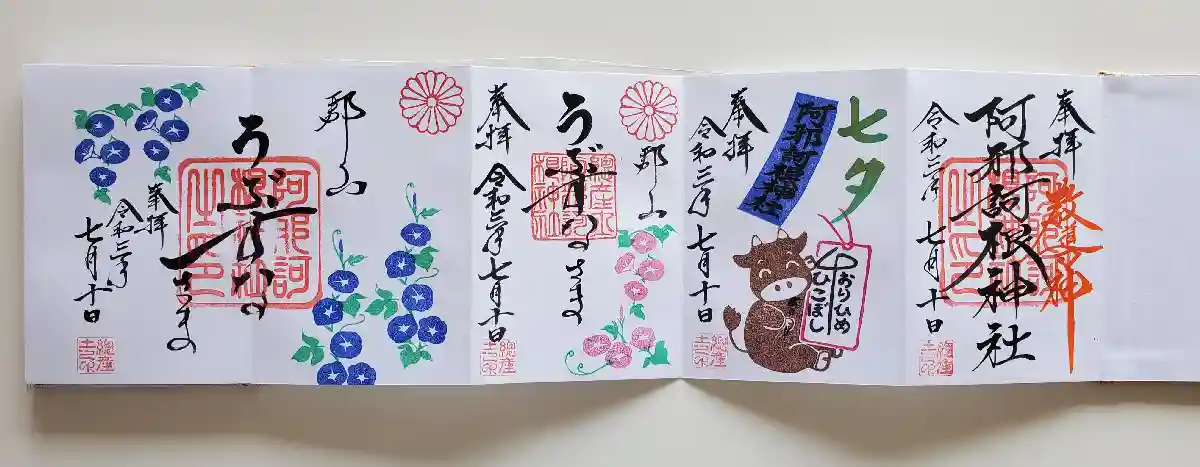 奉拝
阿邪訶根神社
数道神
令和三年
七月十日
七夕
阿邪訶根神社
奉拝
令和三年
七月十日
おりひめ
ひこぼし
郡山
うぶすなの
さま
奉拝
令和三年七月十日
郡山
うぶすなの
さま
奉拝
令和三年
七月十日